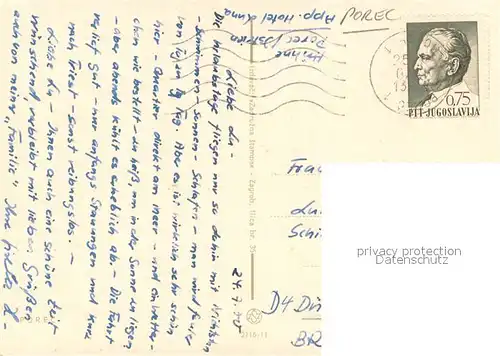 POREC
App. Hotel Anna
Poreč/Istrien
Kühne
6,75
PTT JUGOSLAVIJA
24.7.70
Liebe Lu -
Die Urlaubstage fliegen nur so dahin mit Nichtstun
- Schwimmen - Sonnen - Schlafen - man wird fauler
von Tag zu Tag. Aber es ist wirklich sehr schön
hier - Quartier direkt am Meer - und ein Wetter
wie bestellt - zu heiß, um in der Sonne zu liegen
- aber abends kühlt es erheblich ab - Die Fahrt
verlief gut - nur anfangs Stauungen und kurz
nach Triest - sonst reibungslos. -
Liebe Lu - Ihnen auch eine schöne Zeit
wünschend, verbleibt mit lieben Grüßen
auch von meiner "Familie" Ihre
Frau
Lu
Sch
D4 Dü
BR
privacy protection
watermark